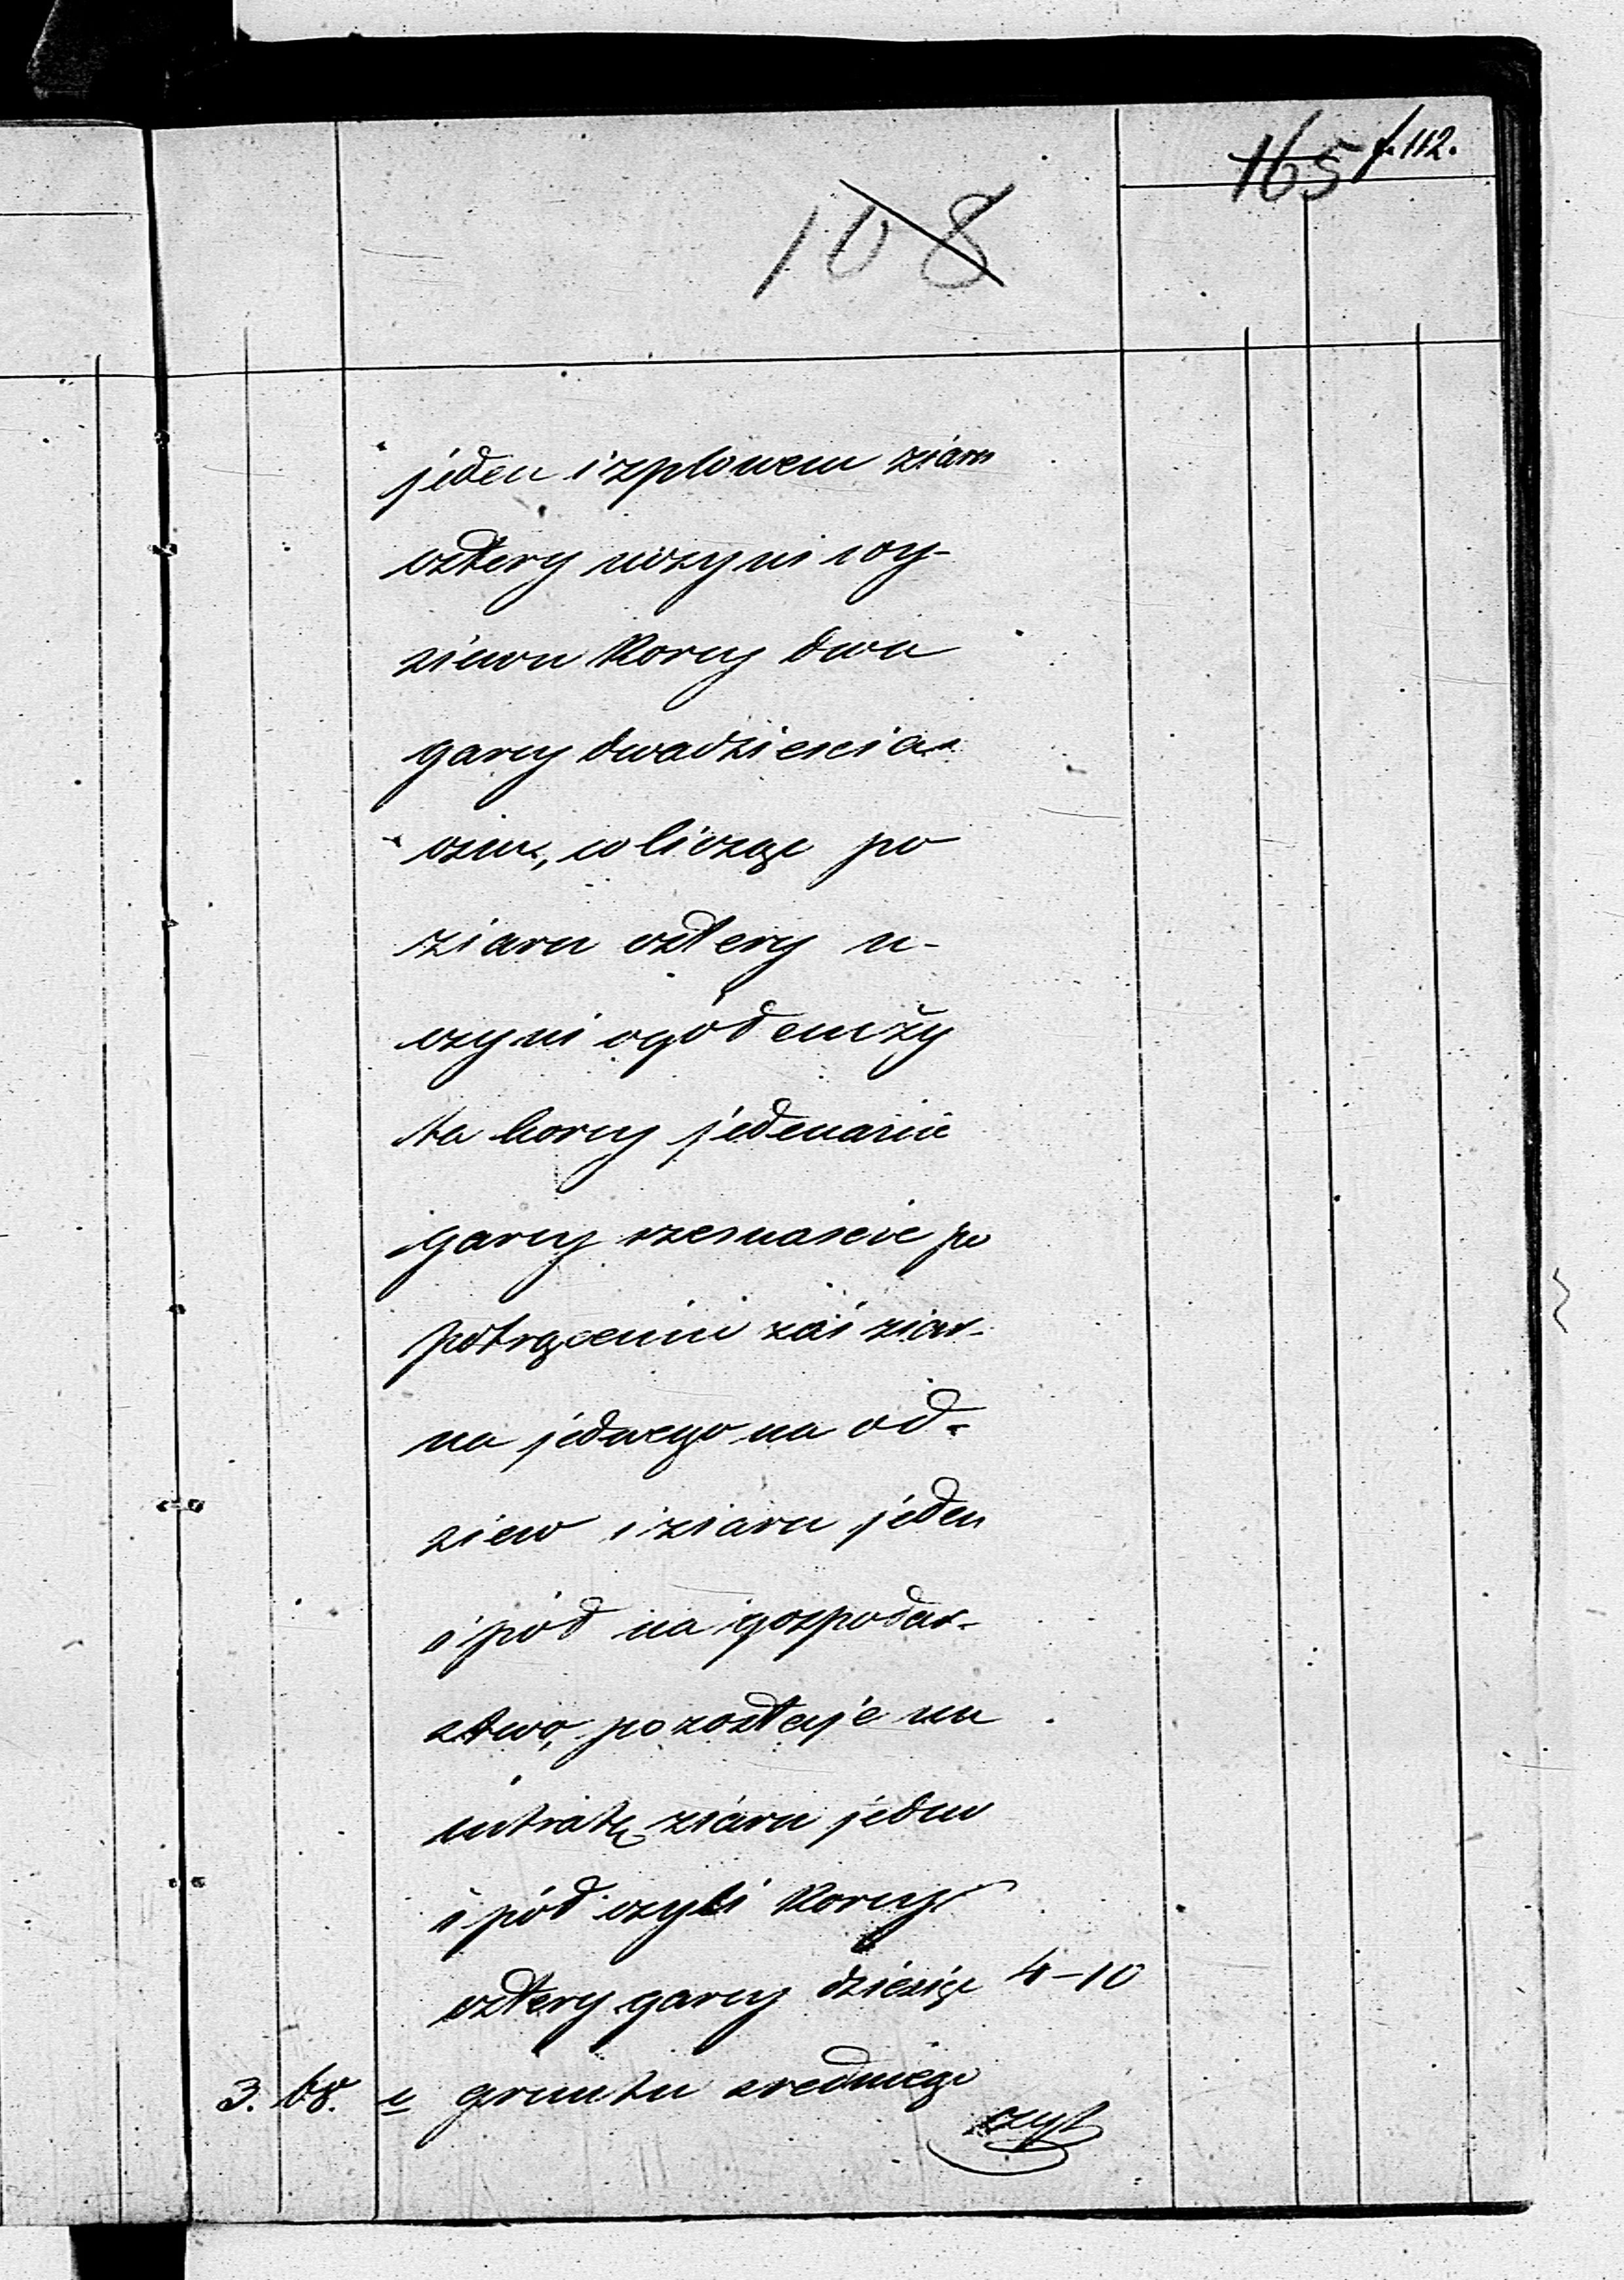 165 f. 112.
108
jeden i z plonem ziarn
cztery uczyni wy-
siewu korcy dwa
garcy dwadzieścia
ośm, co licząc po
ziarn cztery u-
czyni ogółem ży
ta korcy jedenaście
garcy szesnaście po
potrąceniu zaś ziar-
na jednego na od-
siew i ziarn jeden
i pół na gospodar-
stwo, pozostaje na
intratę ziarn jedno
i pół czyli korcy
cztery garcy dziesięć 4-10
3. 68. c gruntu średniego
czyst